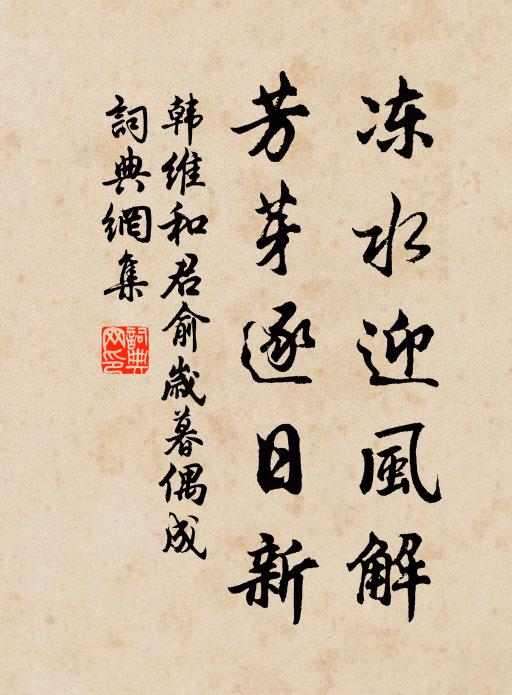 冻水迎風解
芳芽逐日新
韩維和君俞歲暮偶成
詞典網集
詞典網印